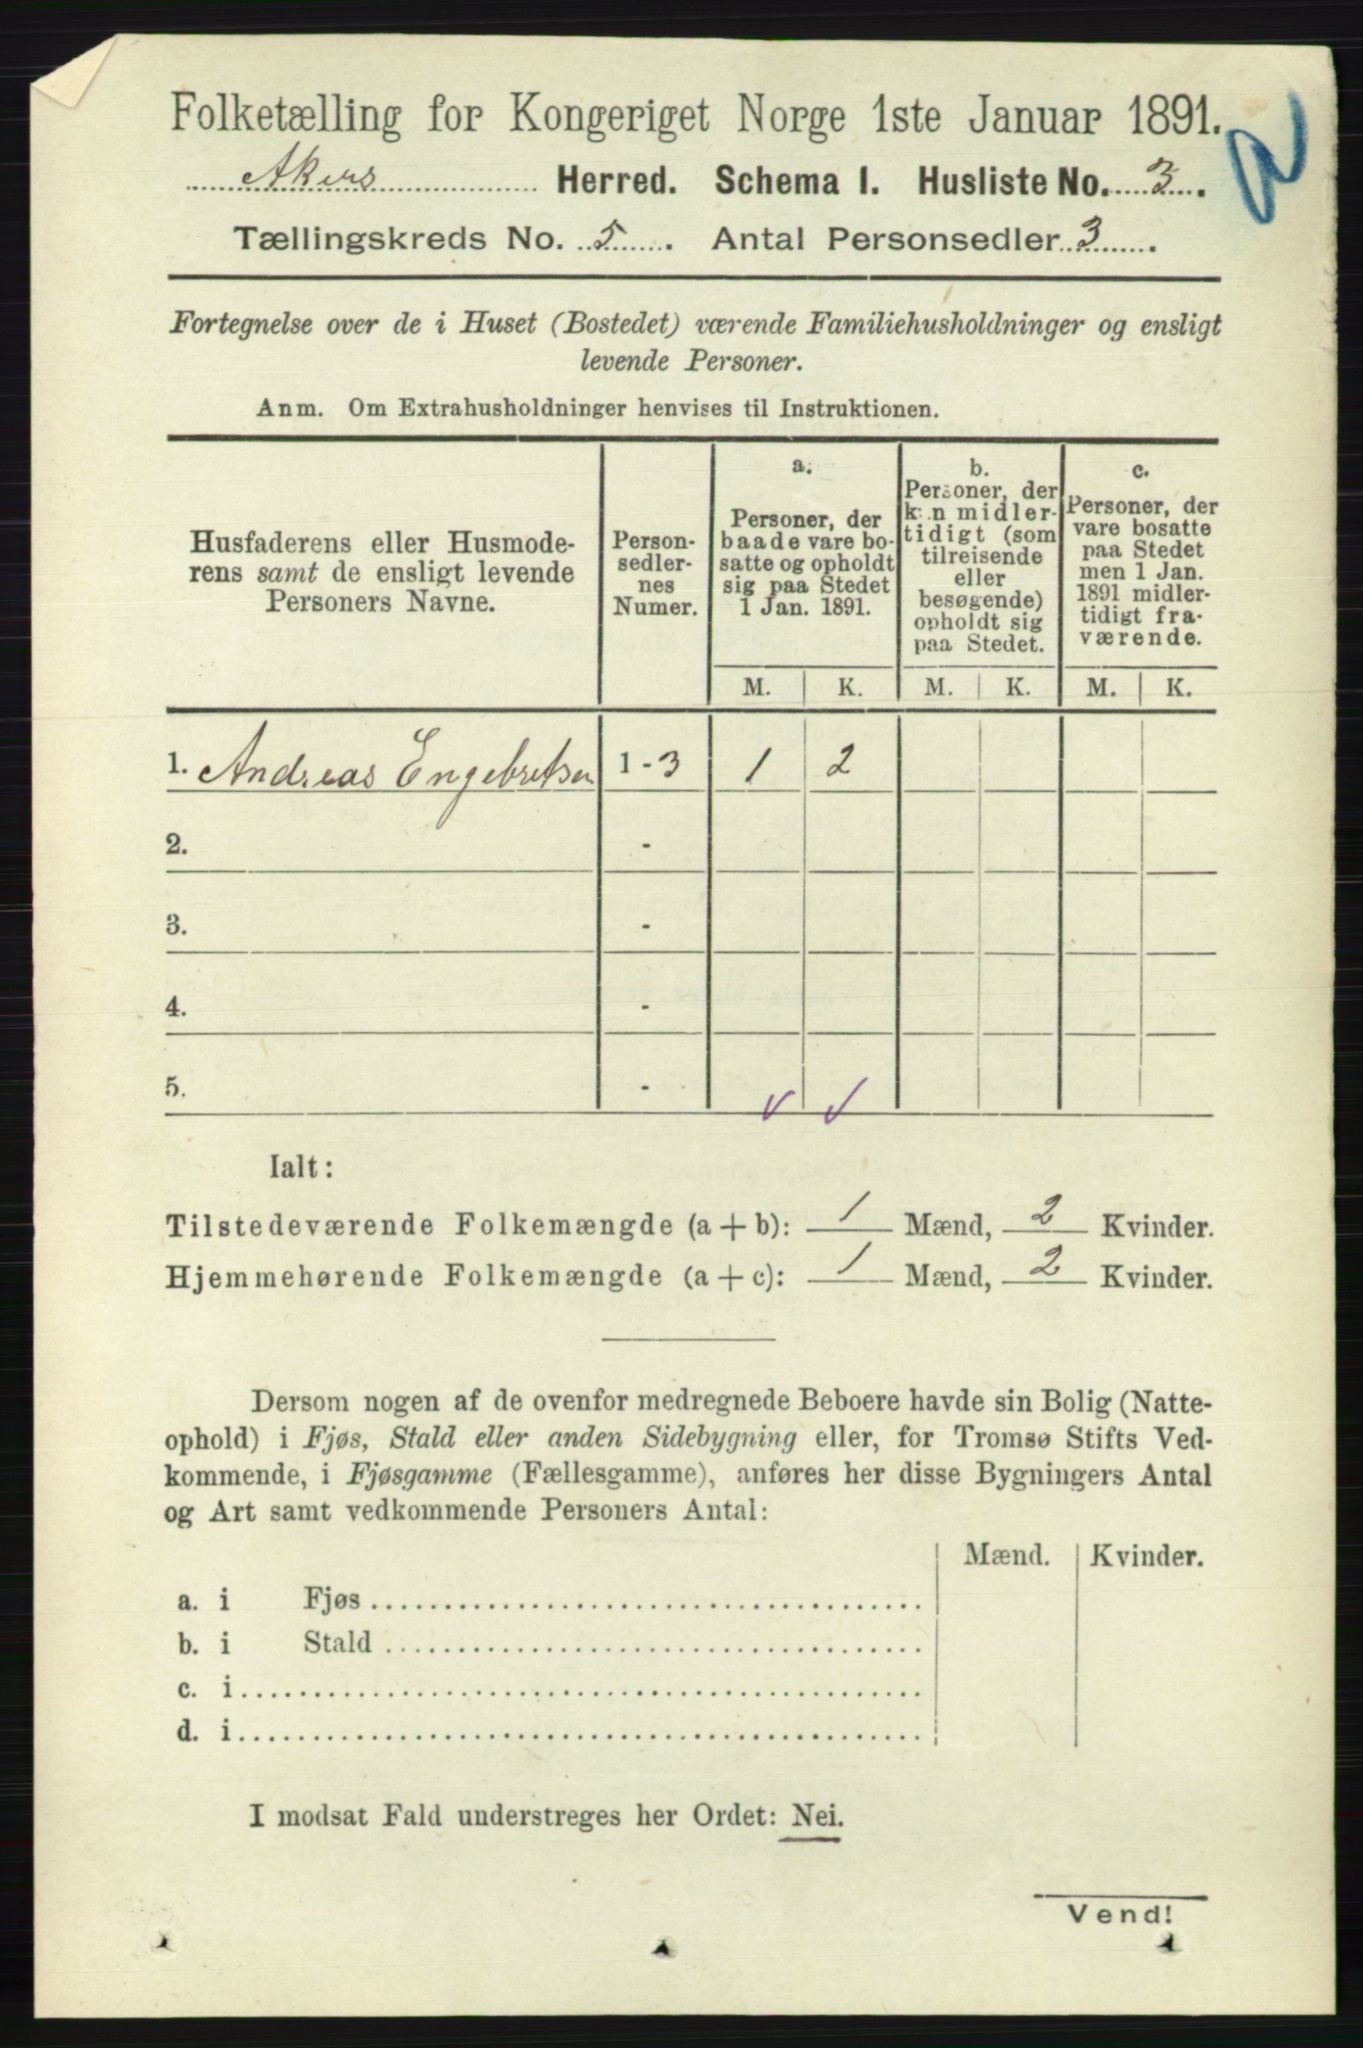 Folketælling for Kongeriget Norge 1ste Januar 1891.
Akers Herred. Schema I. Husliste No. 3.
Tællingskreds No. 5. Antal Personsedler 3.
Fortegnelse over de i Huset (Bostedet) værende Familiehusholdninger og ensligt
levende Personer.
Anm. Om Extrahusholdninger henvises til Instruktionen.
Husfaderens eller Husmode-
rens samt de ensligt levende
Personers Navne.
Person-
sedler-
nes
Numer.
a.
Personer, der
baade vare bo-
satte og opholdt
sig paa Stedet
1 Jan. 1891.
b.
Personer, der
kun midler-
tidigt (som
tilreisende
eller
besøgende)
opholdt sig
paa Stedet.
c.
Personer, der
vare bosatte
paa Stedet
men 1 Jan.
1891 midler-
tidigt fra-
værende.
M. K. M. K. M. K.
1. Andreas Engebretsen 1 - 3 1 2
2. -
3. -
4. -
5. -
Ialt:
Tilstedeværende Folkemængde (a + b): 1 Mænd, 2 Kvinder.
Hjemmehørende Folkemængde (a + c): 1 Mænd, 2 Kvinder.
Dersom nogen af de ovenfor medregnede Beboere havde sin Bolig (Natte-
ophold) i Fjøs, Stald eller anden Sidebygning eller, for Tromsø Stifts Ved-
kommende, i Fjøsgamme (Fællesgamme), anføres her disse Bygningers Antal
og Art samt vedkommende Personers Antal:
Mænd. Kvinder.
a. i Fjøs
b. i Stald
c. i
d. i
I modsat Fald understreges her Ordet: Nei.
Vend!